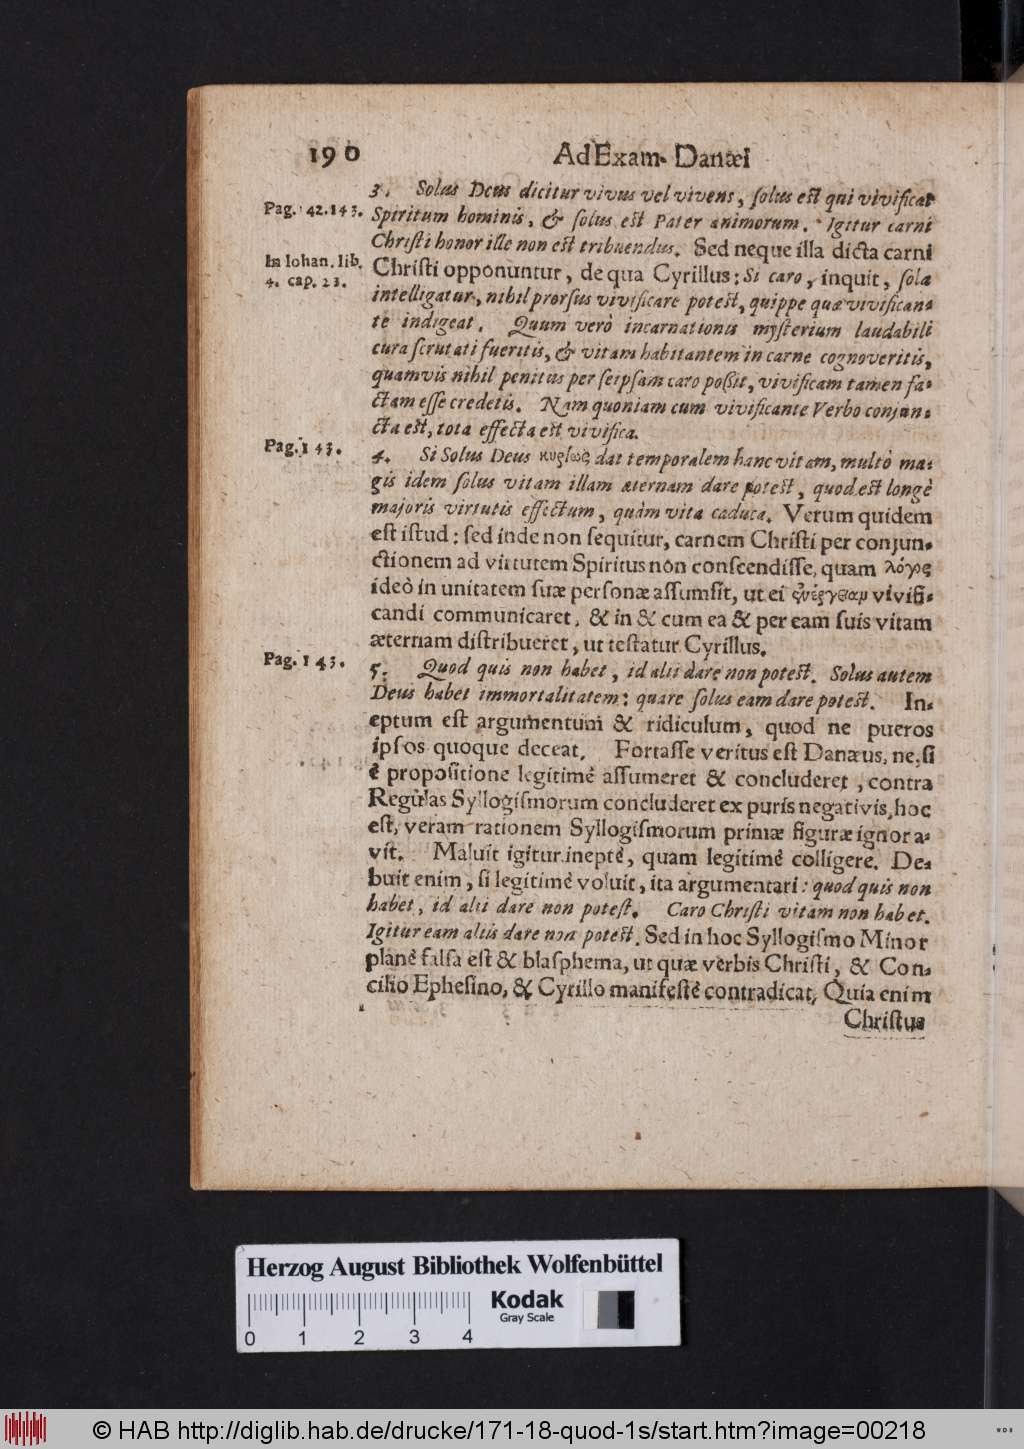 190 Ad Exam. Danæi
3. Solus Deus dicitur vivus vel vivens, ſolus eſt qui vivificat
Pag. 142.143. Spiritum hominis, & ſolus eſt Pater animorum. Igitur carni
Chriſti honor ille non eſt tribuendus. Sed neque illa dicta carni
In Iohan. lib. Chriſti opponuntur, de qua Cyrillus: Si caro, inquit, ſola
4. cap. 23. intelligatur, nihil prorſus vivificare poteſt, quippe quæ vivifican-
te indigeat. Quum verò incarnationis myſterium laudabili
cura ſcrutati fueritis, & vitam habitantem in carne cognoveritis,
quamvis nihil penitus per ſeipſam caro poßit, vivificam tamen fa-
ctam eſſe credetis. Nam quoniam cum vivificante Verbo conjun-
cta eſt, tota effecta eſt vivifica.
Pag. 143. 4. Si Solus Deus κυρίως dat temporalem hanc vitam, multò ma-
gis idem ſolus vitam illam æternam dare poteſt, quod eſt longè
majoris virtutis effectum, quàm vita caduca. Verum quidem
eſt iſtud: ſed inde non ſequitur, carnem Chriſti per conjun-
ctionem ad virtutem Spiritus non conſcendiſſe, quam λόγος
ideò in unitatem ſuæ perſonæ aſſumſit, ut ei vivifi-
candi communicaret, & in & cum ea & per eam ſuis vitam
æternam diſtribueret, ut teſtatur Cyrillus.
Pag. 143. 5. Quod quis non habet, id alii dare non poteſt. Solus autem
Deus habet immortalitatem: quare ſolus eam dare poteſt. In-
eptum eſt argumentum & ridiculum, quod ne pueros
ipſos quoque deceat. Fortaſſe veritus eſt Danæus, ne, ſi
è propoſitione legitimè aſſumeret & concluderet, contra
Regulas Syllogiſmorum concluderet ex puris negativis, hoc
eſt, veram rationem Syllogiſmorum primæ figuræ ignora-
vit. Maluit igitur ineptè, quam legitimè colligere. De-
buit enim, ſi legitimè voluit, ita argumentari: quod quis non
habet, id alii dare non poteſt. Caro Chriſti vitam non habet.
Igitur eam aliis dare non poteſt. Sed in hoc Syllogiſmo Minor
planè falſa eſt & blaſphema, ut quæ verbis Chriſti, & Con-
cilio Epheſino, & Cyrillo manifeſtè contradicat, Quia enim
Chriſtus
Herzog August Bibliothek Wolfenbüttel
Kodak
Gray Scale
0 1 2 3 4
© HAB http://diglib.hab.de/drucke/171-18-quod-1s/start.htm?image=00218